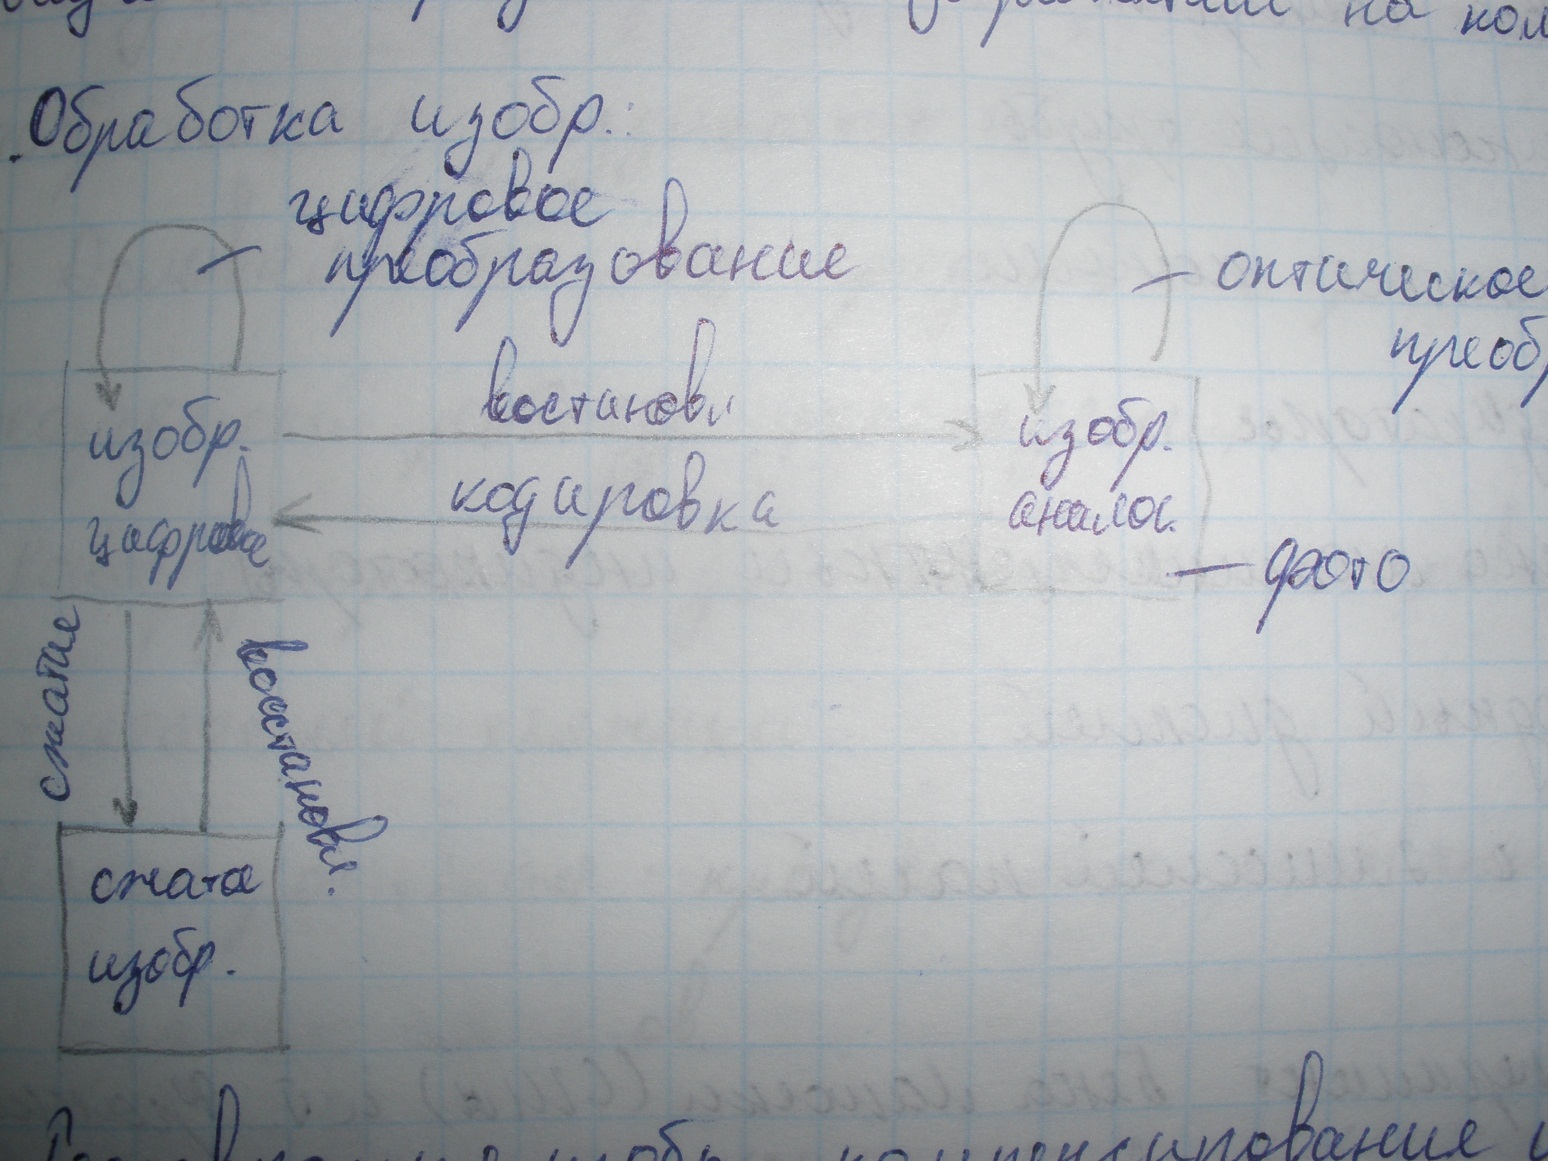 на ком
Обработка изобр.:
цифровое
преобразование
оптическое
преобр
востановл
изобр.
цифровое
кодировка
изобр.
аналог.
— фото
сжатие
восстановл.
сжатое
изобр.
изобр компенсирование и